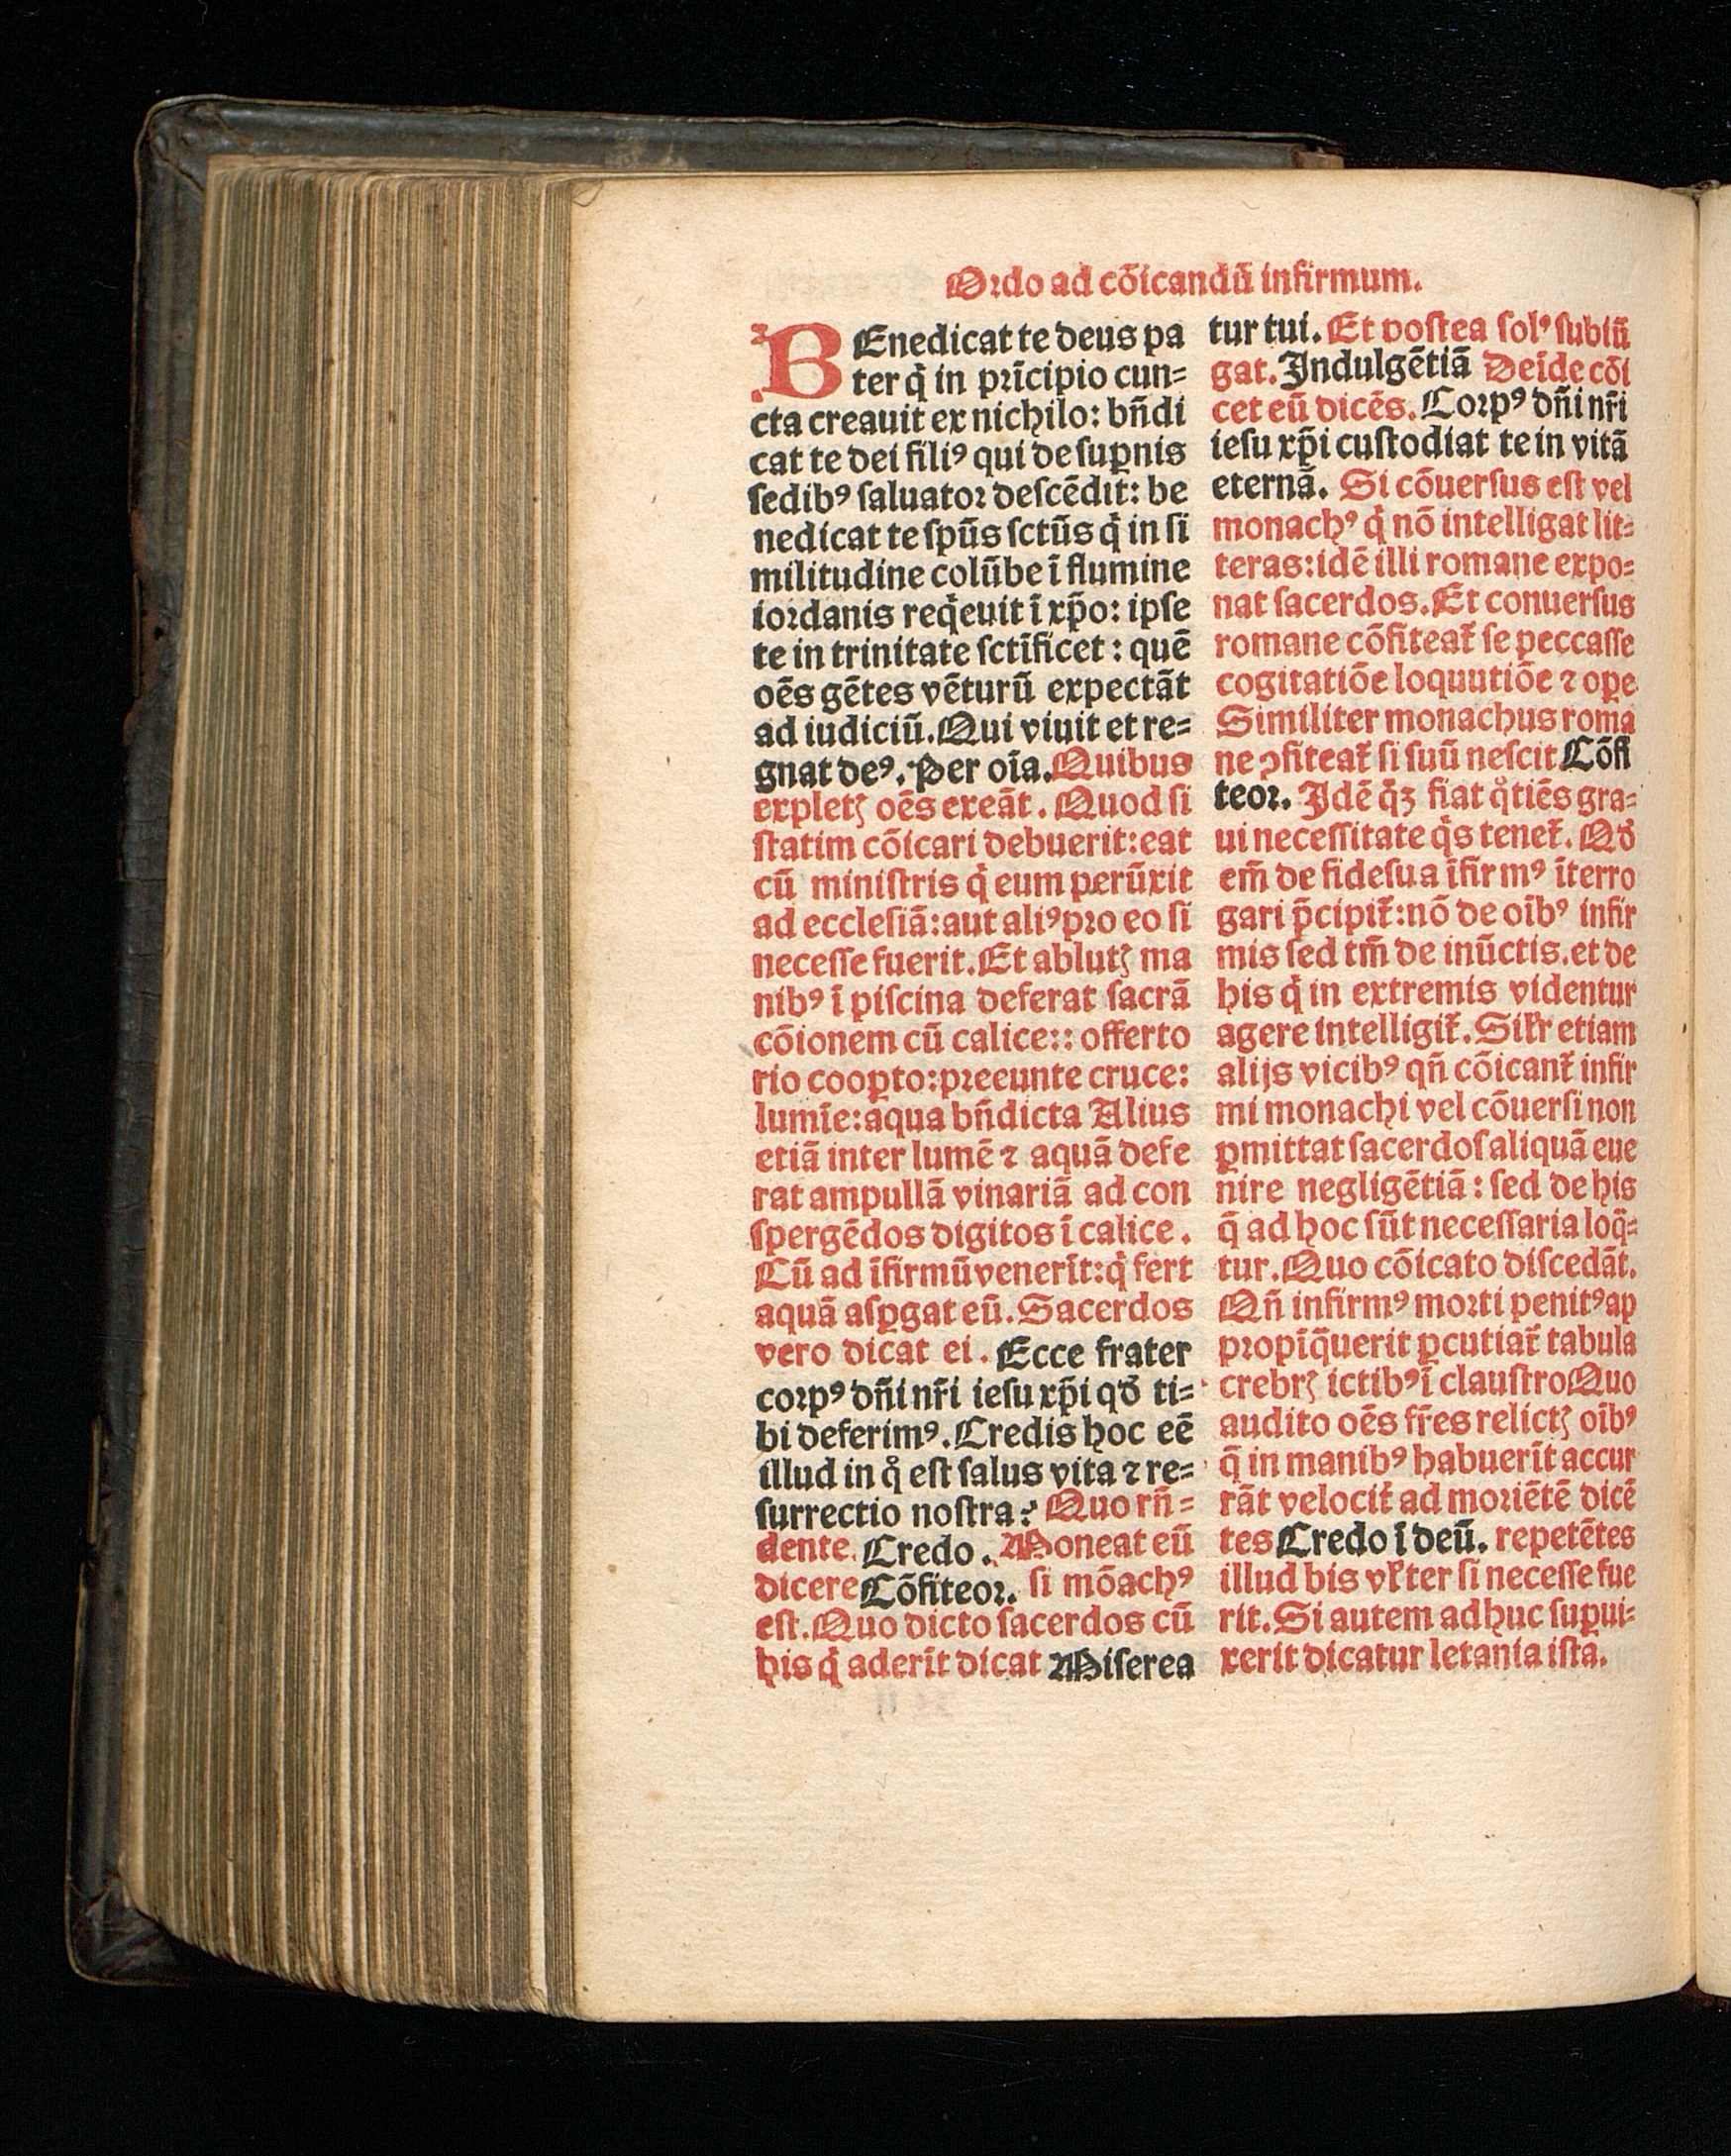 Ordo ad cōicandū infirmum.
BEnedicat te deus pa
ter q̇ in prīcipio cun=
cta creauit ex nichilo: bn̄di
cat te dei filiꝰ qui de suꝑnis
sedibꝰ saluator descēdit: be
nedicat te spūs sctūs q̇ in si
militudine colūbe ī flumine
iordanis reqeuit ī xp̄o: ipse
te in trinitate sctīficet : quē
oēs gētes vēturū expectāt
ad iudiciū. Qui viuit et re=
gnat deꝰ. Per oīa. Quibus
expletꝭ oēs exeāt. Quod si
statim cōicari debuerit: eat
cū ministris q̇ eum perūxit
ad ecclesiā: aut aliꝰ pro eo si
necesse fuerit. Et ablutꝭ ma
nibꝰ ī piscina deferat sacrā
cōionem cū calice:: offerto
rio cooꝑto: preeunte cruce:
lumīe: aqua bn̄dicta Alius
etiā inter lumē ⁊ aquā defe
rat ampullā vinariā ad con
spergēdos digitos ī calice.
Cū ad īfirmū venerīt: q̇ fert
aquā asꝑgat eū. Sacerdos
vero dicat ei. Ecce frater
corpꝰ dn̄i nr̄i iesu xp̄i qđ ti=
bi deferimꝰ. Credis hoc eē
illud in q̊ est salus vita ⁊ re=
surrectio nostra? Quo rn̄=
dente. Credo. Moneat eū
dicere Cōfiteor. si mōachꝰ
est. Quo dicto sacerdos cū
his q̇ aderīt dicat Miserea
tur tui. Et postea solꝰ subiū
gat. Indulgētiā Deīde cōi
cet eū dicēs. Corpꝰ dn̄i nr̄i
iesu xp̄i custodiat te in vitā
eternā. Si cōuersus est vel
monachꝰ q̇ nō intelligat lit=
teras: idē illi romane expo=
nat sacerdos. Et conuersus
romane cōfiteat̃ se peccasse
cogitatiōe loquutiōe ⁊ oꝑe
Similiter monachus roma
ne ꝯfiteat̃ si suū nescit Cōfi
teor. Idē q̇ꝫ fiat q̊tiēs gra=
ui necessitate q̇s tenet̃. Qđ
em̄ de fide sua īfirmꝰ īterro
gari p̄cipit̃: nō de oībꝰ infir
mis sed tm̄ de inūctis. et de
his q̇ in extremis videntur
agere intelligit̃. Silr̄ etiam
alijs vicibꝰ qn̄ cōicant̃ infir
mi monachi vel cōuersi non
ꝑmittat sacerdos aliquā eue
nire negligētiā: sed de his
q̄ ad hoc sūt necessaria loq̄=
tur. Quo cōicato discedāt.
Qn̄ infirmꝰ morti penitꝰ ap
propīq̄uerit ꝑcutiat̃ tabula
crebrꝭ ictibꝰ ī claustro Quo
audito oēs fr̄es relictꝭ oībꝰ
q̄ in manibꝰ habuerīt accur
rāt velocit̃ ad moriētē dicē
tes Credo ī deū. repetētes
illud bis vl̄ ter si necesse fue
rit. Si autem adhuc suꝑui=
xerit dicatur letania ista.